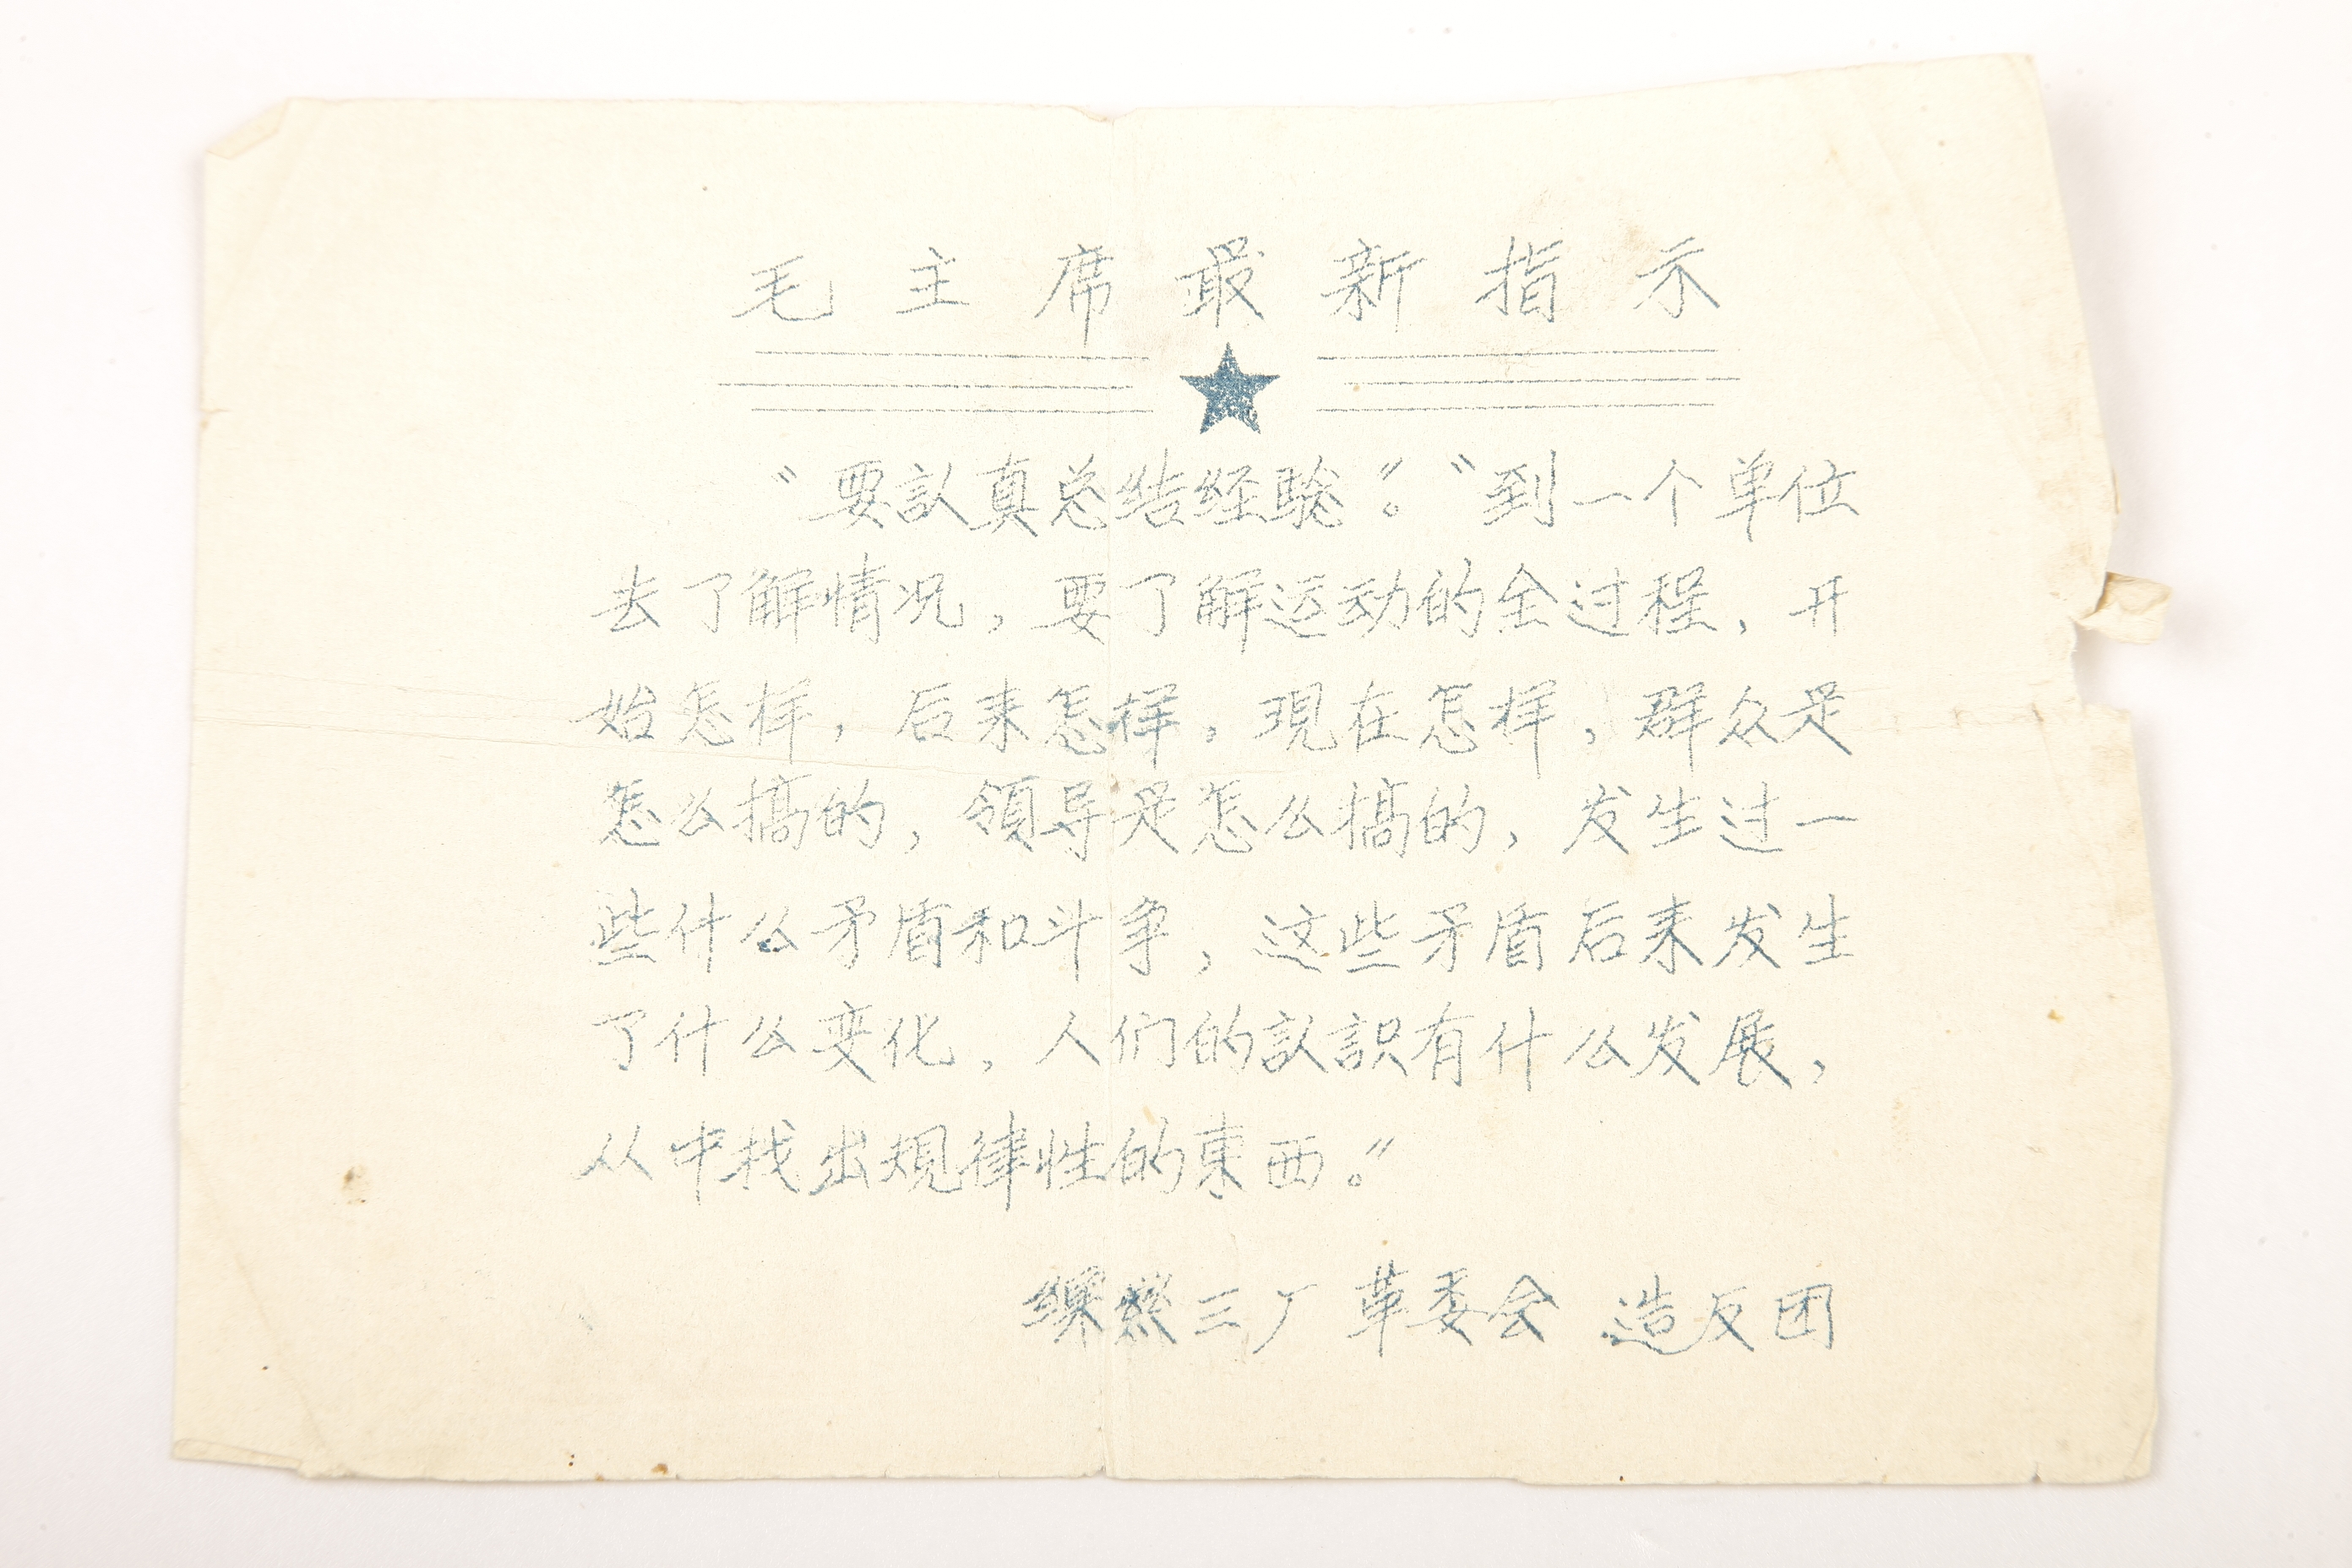 毛主席最新指示
“要訍真总结经驗”。“到一个单位
去了解情况，要了解运动的全过程，开
始怎样，后来怎样，現在怎样，群众是
怎么搞的，領导是怎么搞的，发生过一
些什么矛盾和斗争，这些矛盾后来发生
了什么变化，人们的訍識有什么发展，
从中找出規律性的東西。”
三厂革委会 造反团